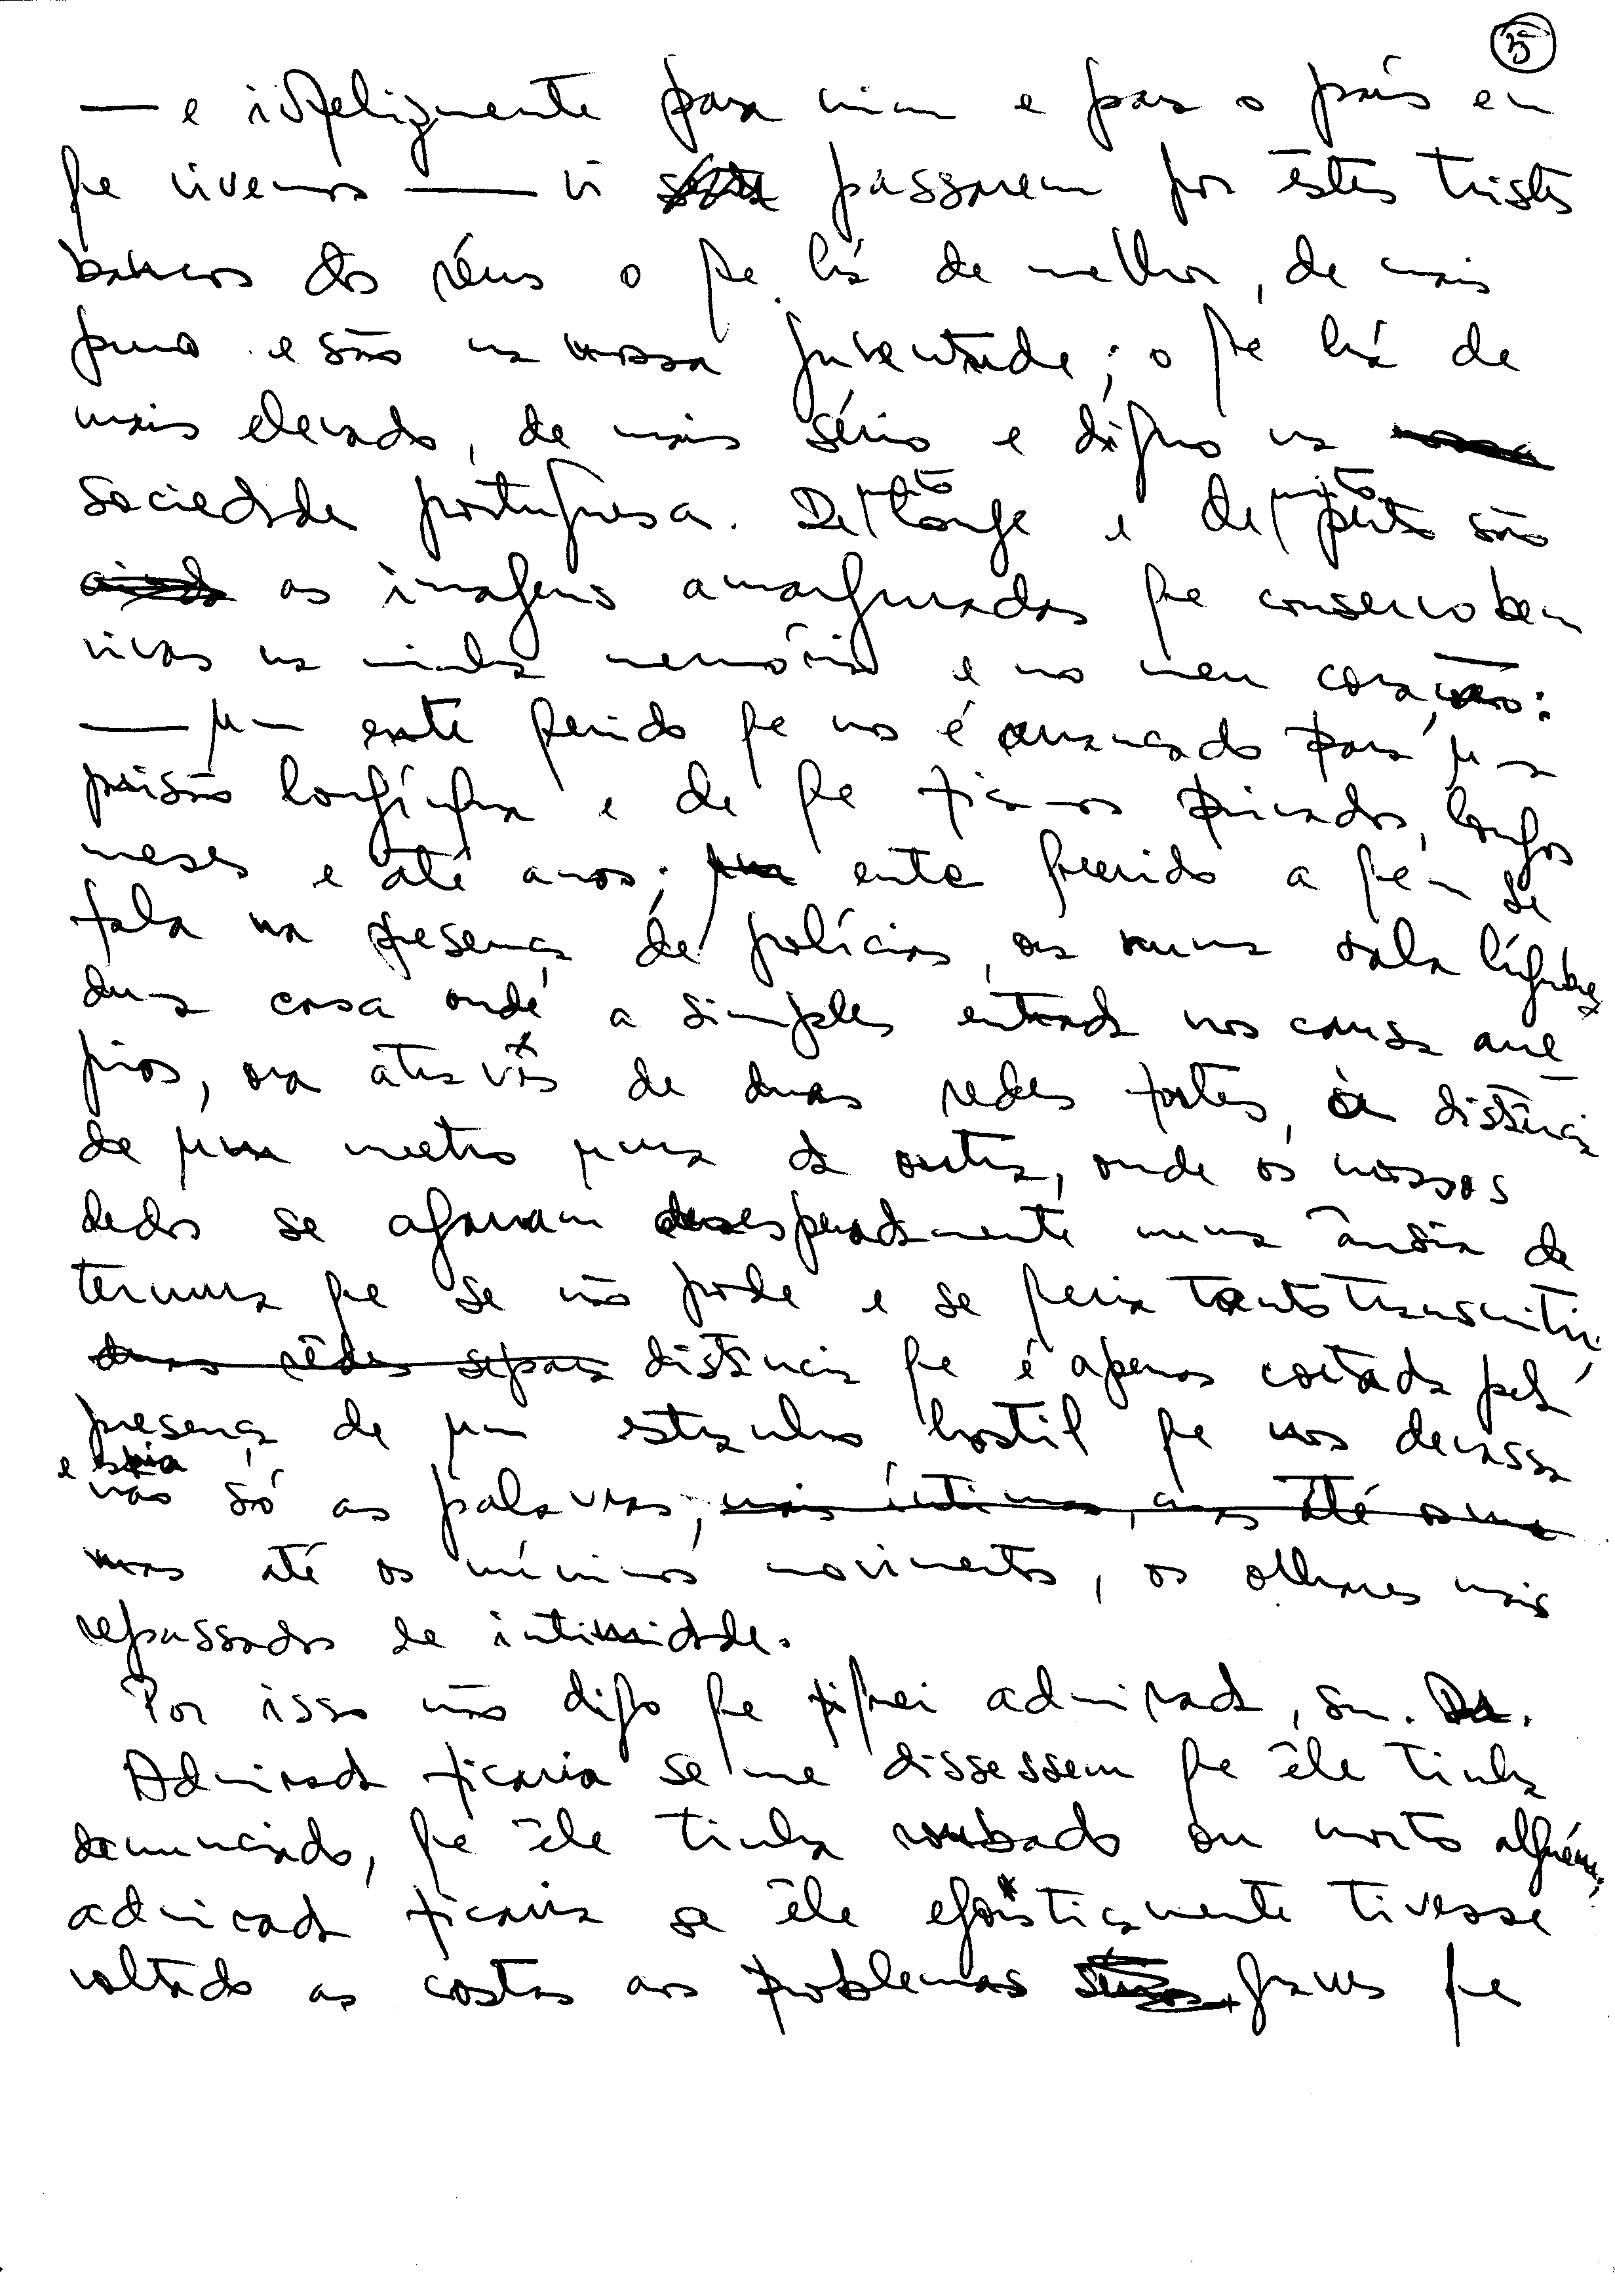 5
— e infelizmente para mim e para o país em
que vivemos — vi passarem por êstes tristes
bancos dos réus o que há de melhor, de mais
puro e são na nossa juventude; o que há de
mais elevado, de mais sério e digno na nossa
sociedade portuguesa. De muito longe e de muito perto são
ainda as imagens amarguradas que conservo bem
vivas na minha memória e no meu coração:
— um ente querido que nos é arrancado para uma
prisão longínqua e de que ficamos privados, longos
meses e até anos; um ente querido a quem se
fala na presença de polícias, ora numa sala lúgubre
duma casa onde a simples entrada nos causa arre-
pios, ora através de duas redes fortes, à distância
de um metro uma da outra, onde os nossos
dedos se agarram desesperadamente numa ânsia de
ternura que se não pode e se queria tanto transmitir,
duas rêdes separa distância que é apenas cortada pela
presença de um estranho hostil que nos devassa
e espia
não só as palavras, mais íntimas, mas até os
mas até os mínimos movimentos, os olhares mais
repassados de intimidade.
Por isso não digo que fiquei admirada, sr. Dr.
Admirada ficaria se me dissessem que êle tinha
denunciado, que êle tinha roubado ou morto alguém;
admirada ficaria se êle egoìsticamente tivesse
voltado as costas aos problemas sérios graves que